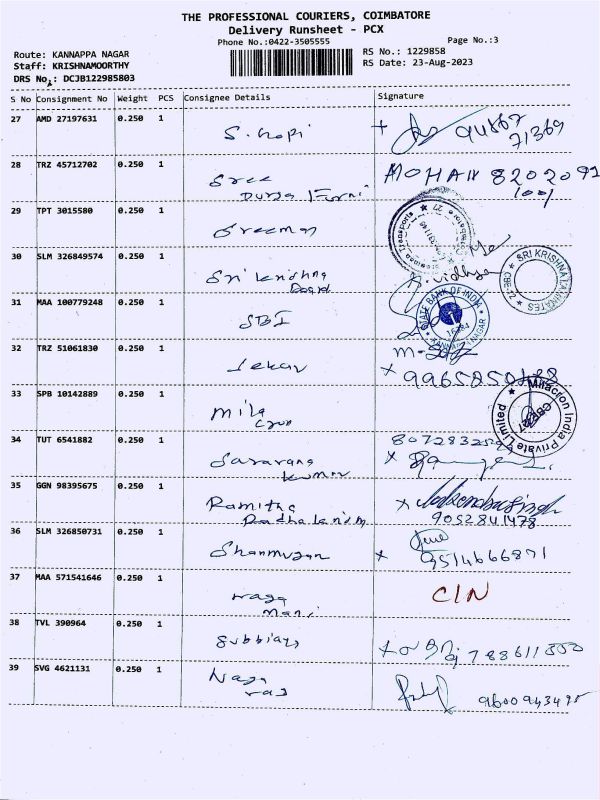 THE PROFESSIONAL COURIERS, COIMBATORE
Delivery Runsheet - PCX
Phone No.:0422-3505555 Page No.:3
Route: KANNAPPA NAGAR RS No.: 1229858
Staff: KRISHNAMOORTHY RS Date: 23-Aug-2023
DRS No.: DCJB122985803
S No Consignment No Weight PCS Consignee Details Signature
27 AMD 27197631 0.250 1 S. Gopi
28 TRZ 45712702 0.250 1 Sree MOHAN
Durga Furni
29 TPT 3015580 0.250 1 Sreeman
30 SLM 326849574 0.250 1 Sri krishna Vidhya SRI KRISHNA LAMINATES
Board
31 MAA 100779248 0.250 1 SBI STATE BANK OF INDIA
KANNAPPA NAGAR
32 TRZ 51061830 0.250 1 Sekar
33 SPB 10142889 0.250 1 Mila Milacron India Private Limited
Cron
34 TUT 6541882 0.250 1 Saravana
kumar
35 GGN 98395675 0.250 1 Ramitha
Radhakrishnan 9052841478
36 SLM 326850731 0.250 1 Shanmugan 9514666871
37 MAA 571541646 0.250 1 Naga C/N
Mani
38 TVL 390964 0.250 1 Subbiaya
39 SVG 4621131 0.250 1 Naga
raj 9600943495